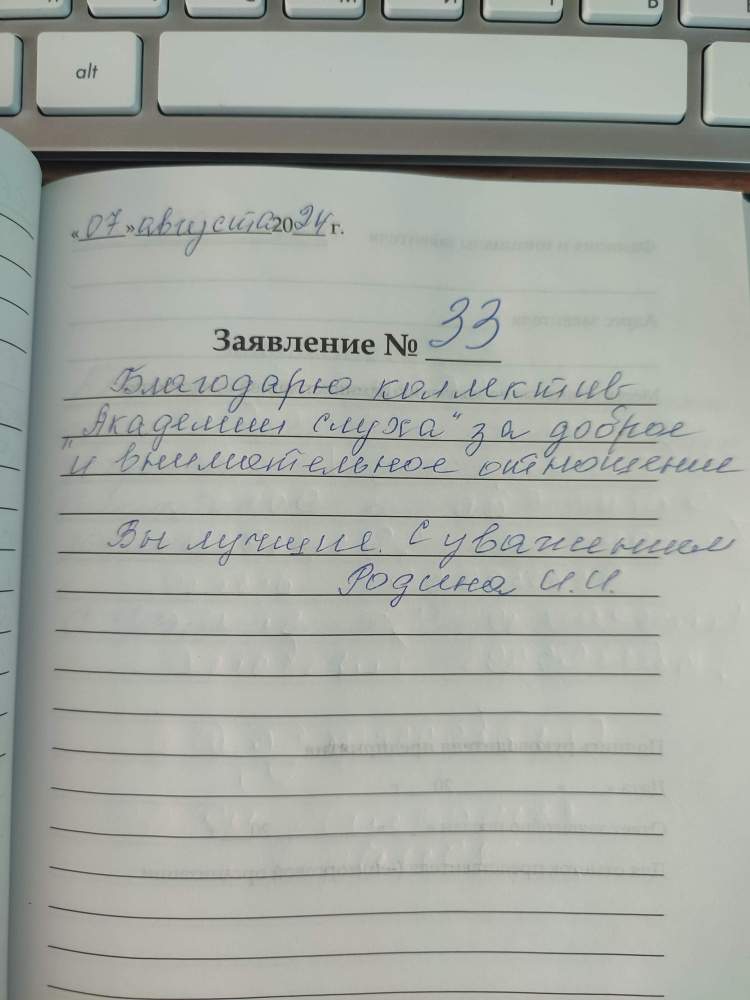 alt
«07» августа 2024 г.
Заявление № 33
Благодарю коллектив
"Академии слуха" за доброе
и внимательное отношение
Вы лучшие. С уважением
Родина И.И.